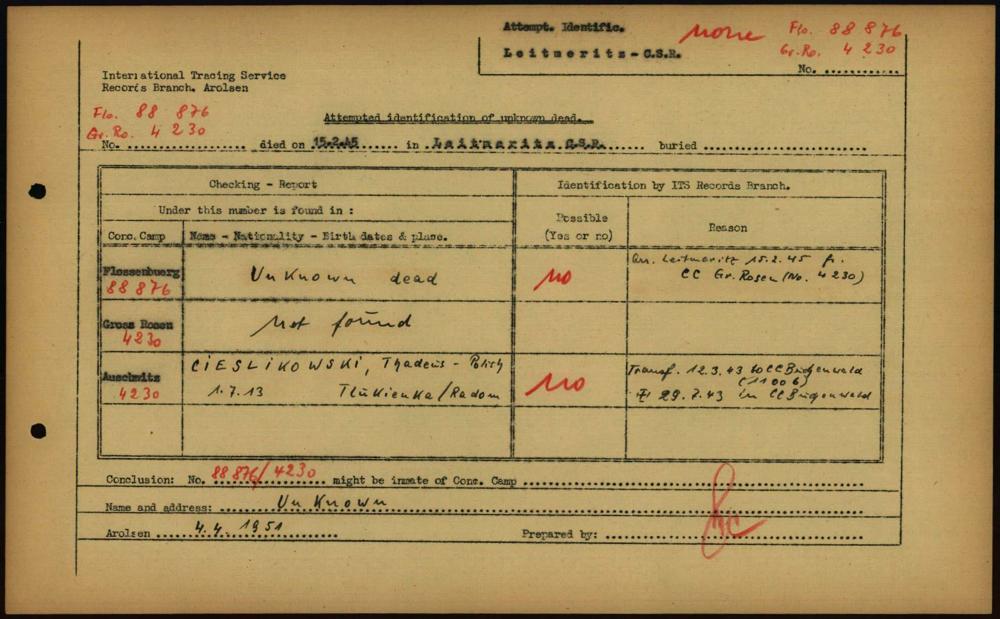 Attempt. Identific. none Flo. 88 876
Leitmeritz - C.S.R. Gr. Ro. 4 230
No. ............
International Tracing Service
Records Branch. Arolsen
Flo. 88 876
Gr. Ro. 4 230
Attempted identification of unknown dead.
No. ............ died on 15.2.45...... in .Leitmeritz C.S.R....... buried ..........................
Checking - Report
Identification by ITS Records Branch.
Under this number is found in :
Possible
(Yes or no)
Reason
Conc. Camp
Name - Nationality - Birth dates & place.
Flossenbuerg
88 876
Unknown dead
no
arr. Leitmeritz 15.2.45 fr.
CC Gr. Rosen (No. 4 230)
Gross Rosen
4230
Not found
Auschwitz
4230
CIESLIKOWSKI, Thadeus - Polish
1.7.13 Tlukienka/Radom
no
Transf. 12.3.43 to CC Bugenwald
(11006)
29.7.43 in CC Bugenwald
Conclusion: No. 88 876/4230 might be inmate of Conc. Camp ..........................
Name and address: Unknown
Arolsen 4.4.1951
Prepared by: ..........................